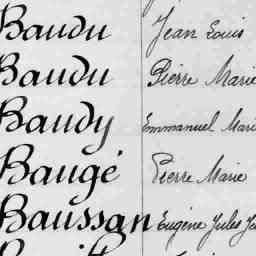 Baudu Jean Louis
Baudu Pierre Marie
Baudy Emmanuel Mari
Baugé Pierre Marie
Baussan Eugène Jules